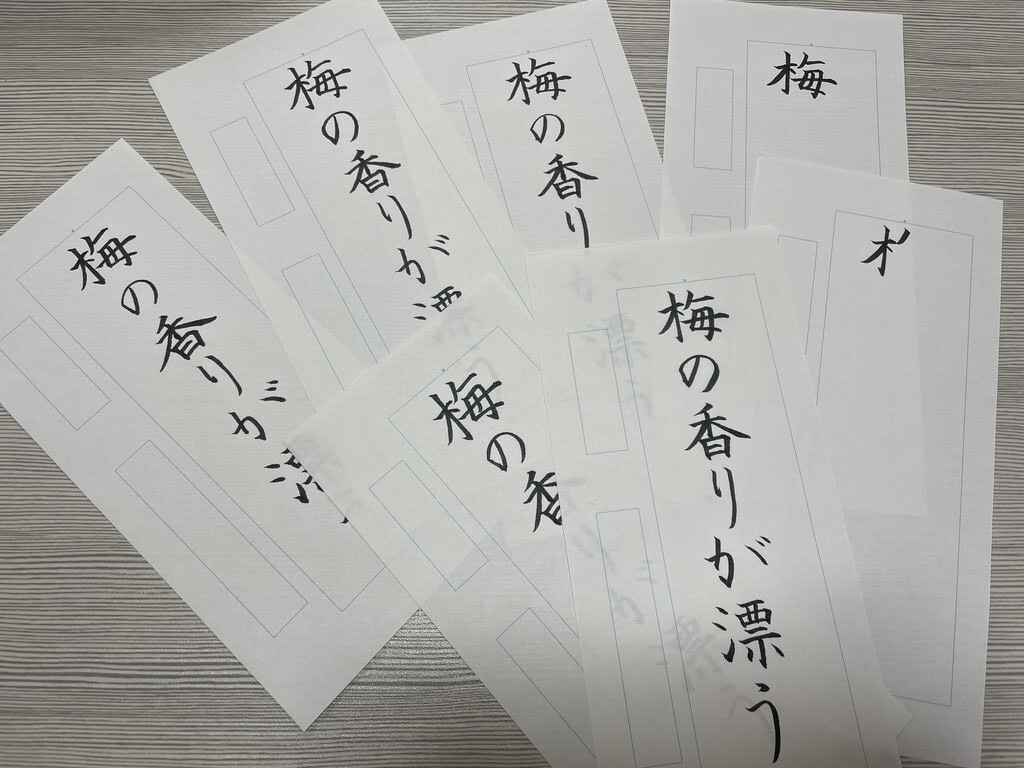 梅の香りが
梅の香りが
梅の香り
梅
梅の香
梅の香りが漂う